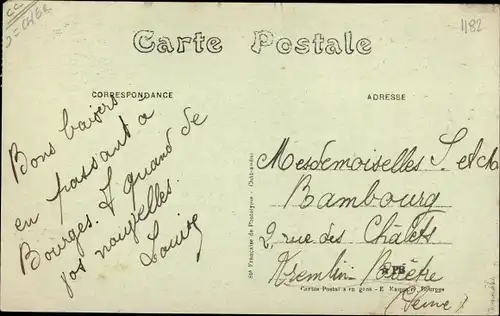 1182
Carte Postale
CORRESPONDANCE
ADRESSE
Bons baisers
en passant a
Bourges. A quand de
vos nouvelles.
Louise
Mesdemoiselles S. et
Bambourg
2 rue des Châlets
Kremlin-Bicêtre
Seine
Sté Française de Phototypie - Châteaudun
Cartes Postales en gros - E. Bourges